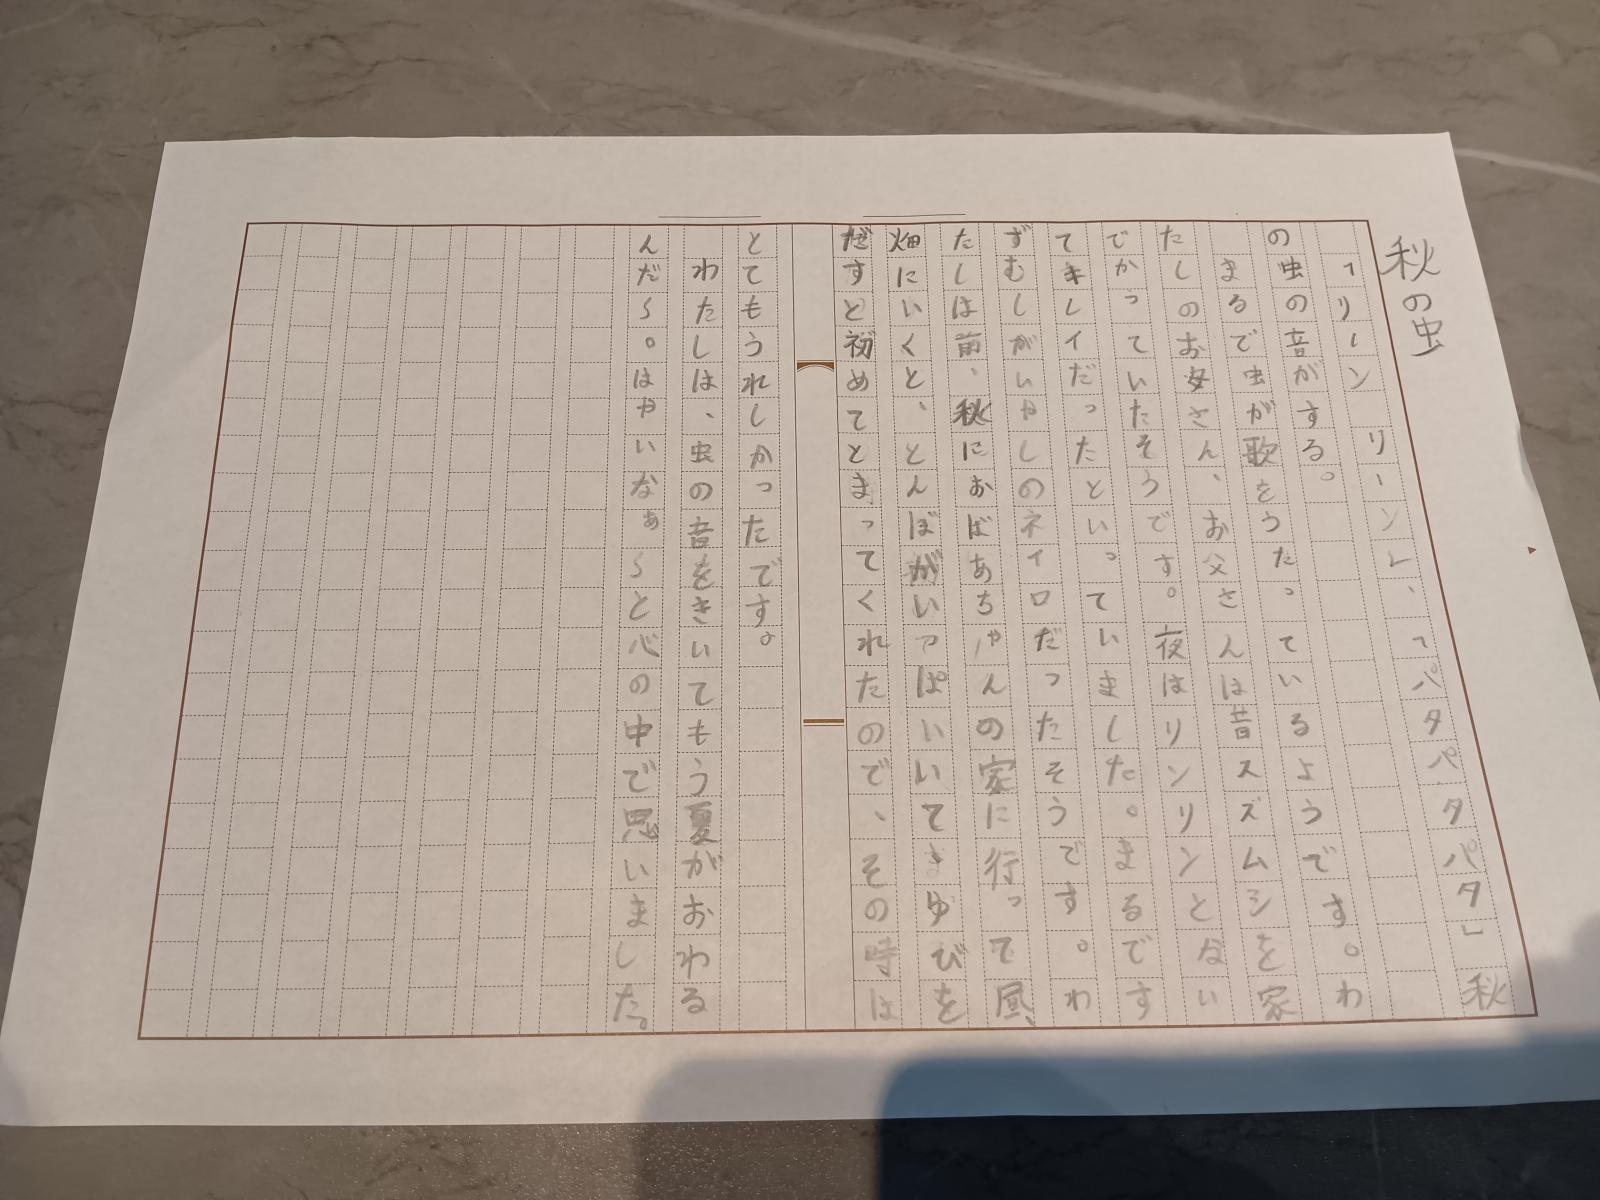 秋の虫
「リーン リーン」、「パタパタパタ」秋
の虫の音がする。
まるで虫が歌をうたっているようです。わ
たしのお母さん、お父さんは昔スズムシを家
でかっていたそうです。夜はリンリンとない
てキレイだったといっていました。まるです
ずむしがいやしのネイロだったそうです。わ
たしは前、秋におばあちゃんの家に行って昼、
畑にいくと、とんぼがいっぱいいてきゆびを
だすと初めてとまってくれたので、その時は
とてもうれしかったです。
わたしは、虫の音をきいてもう夏がおわる
んだ〜。はやいなぁ〜と心の中で思いました。